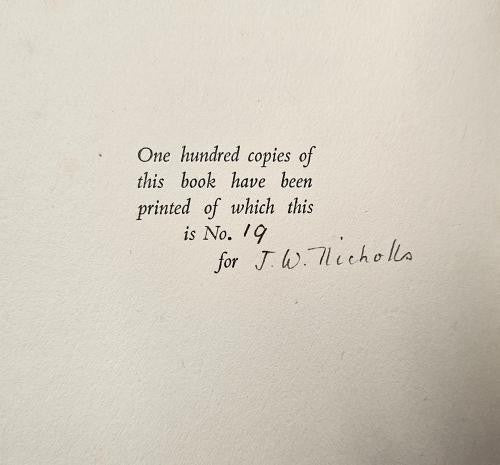 One hundred copies of
this book have been
printed of which this
is No. 19
for J. W. Nicholls